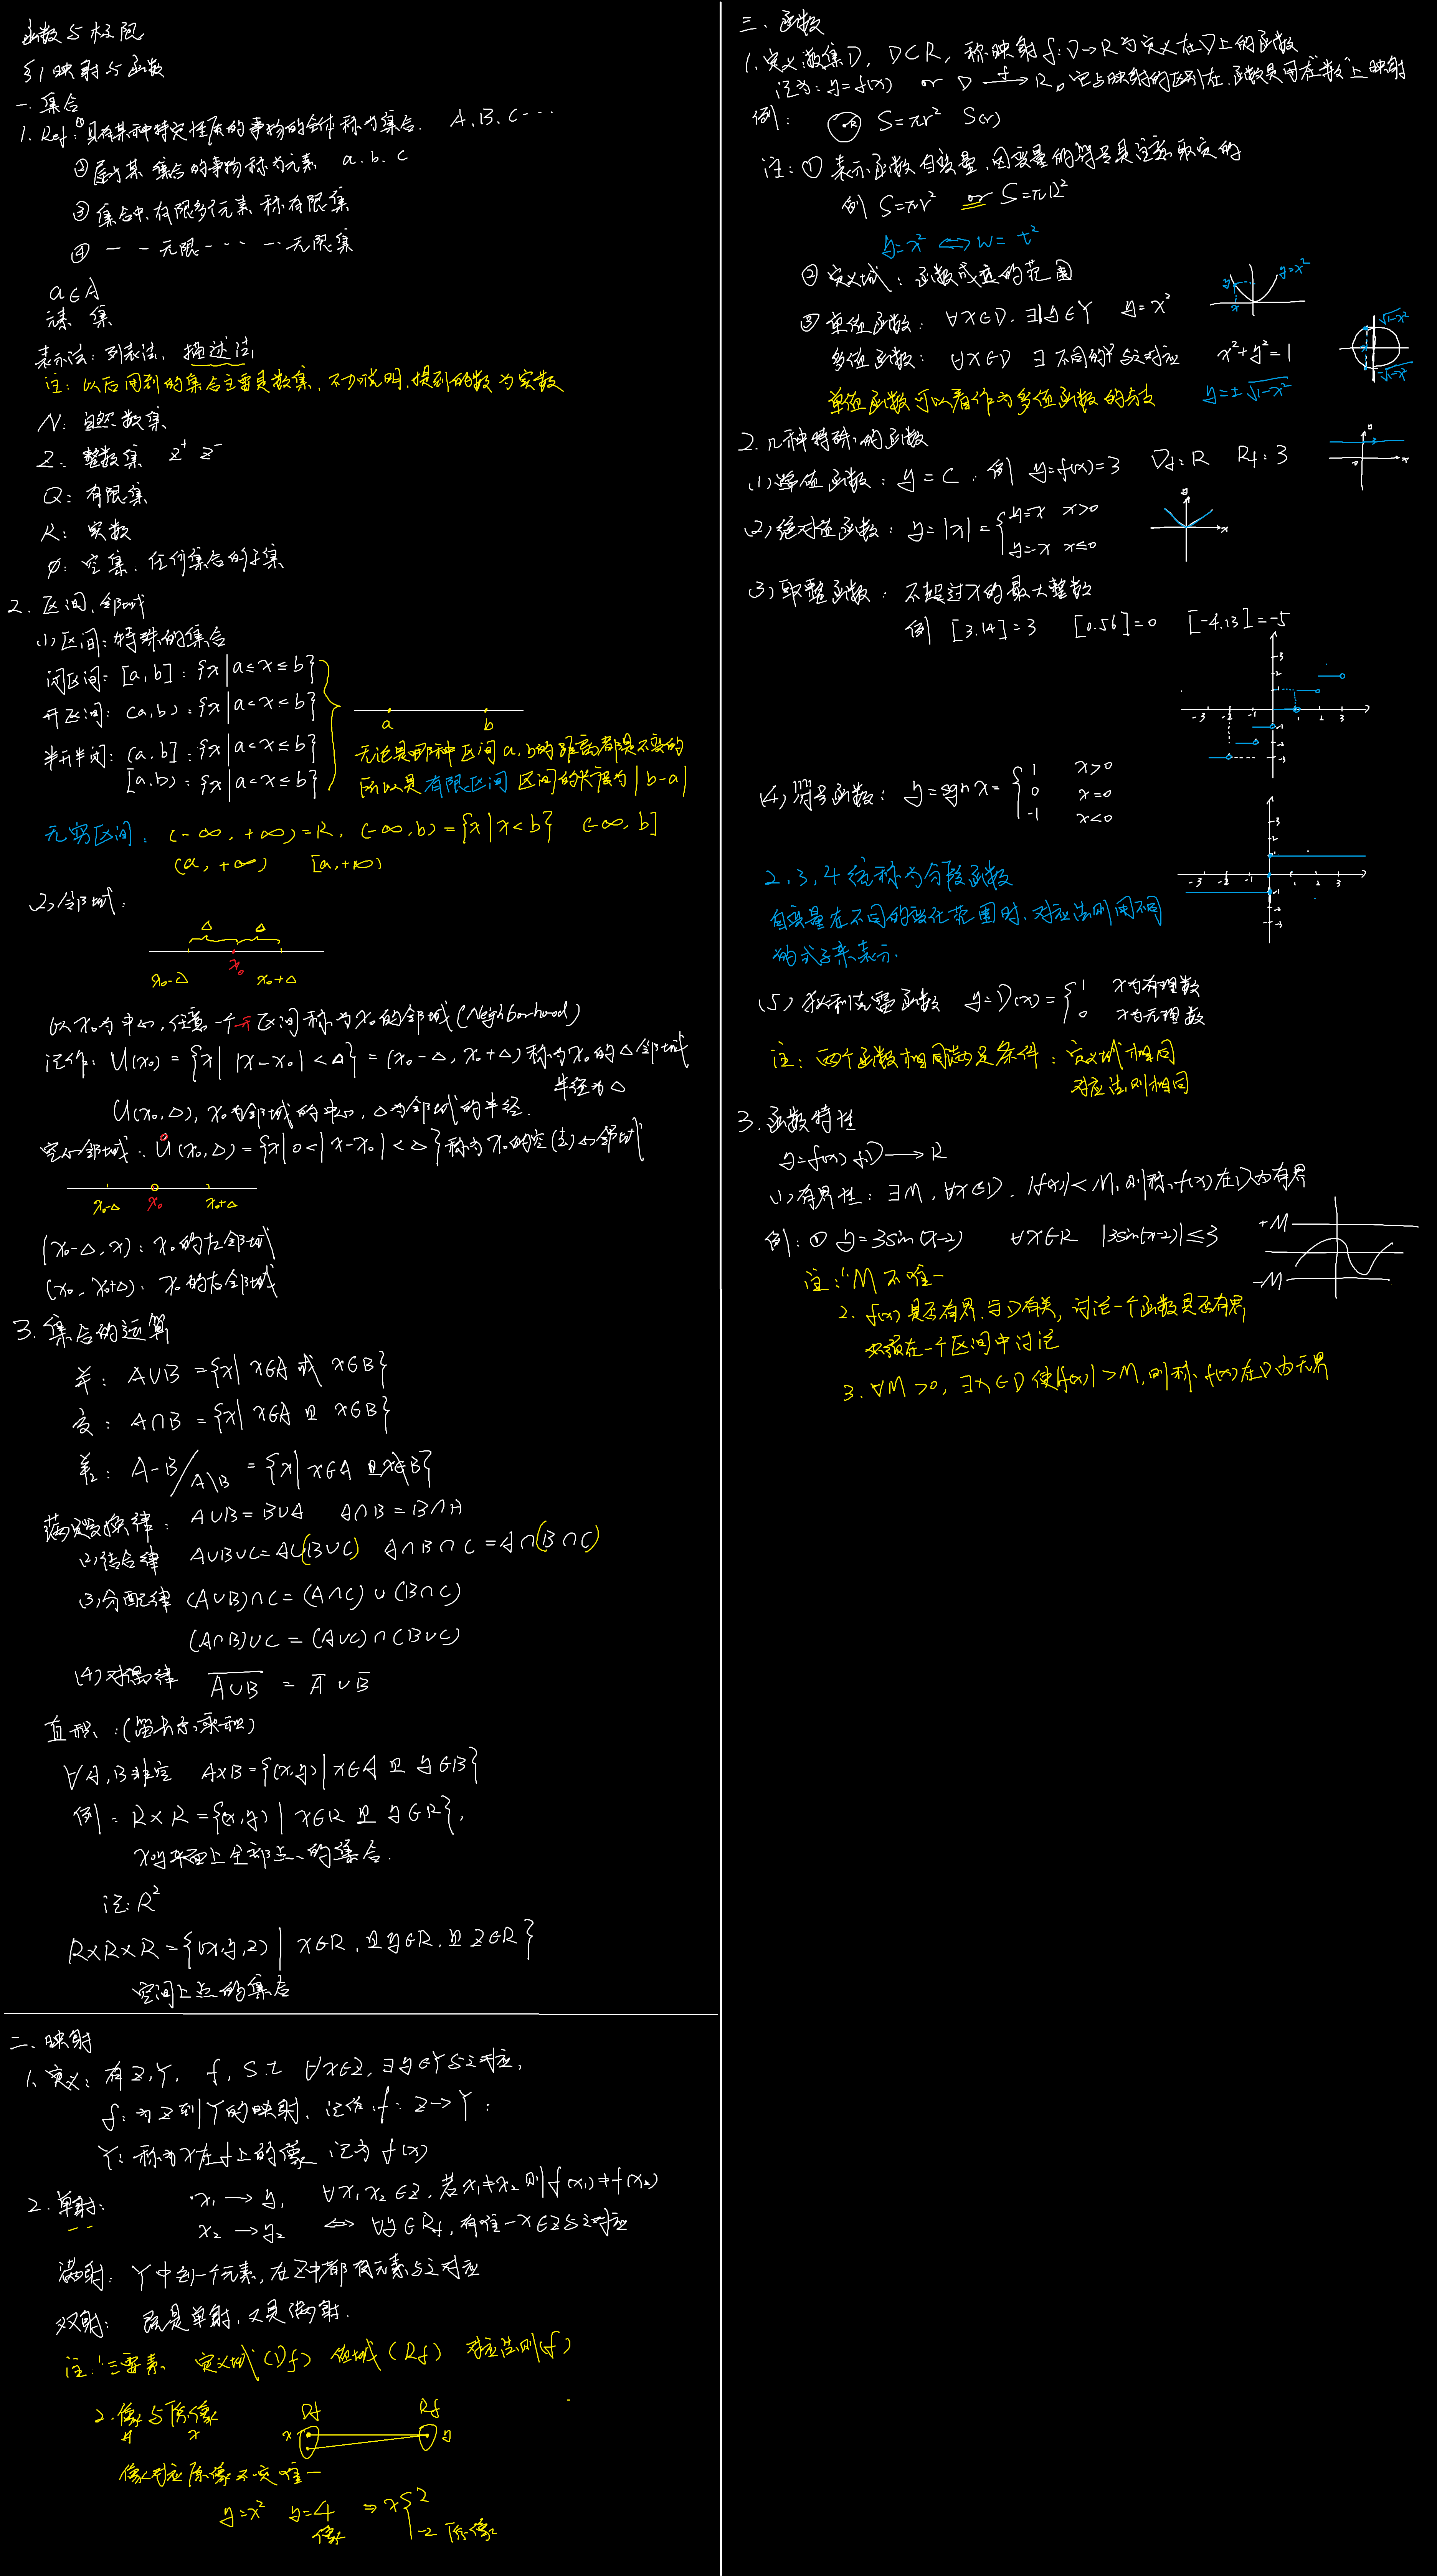 函数与极限
§1 映射与函数
一. 集合
1. Ref: ①具有某种特定性质的事物的全体称为集合. A. B. C ···
②属于某集合的事物称为元素 a. b. c
③集合中有限多个元素称有限集
④ 一 一 无限 - - - 一 无限集
a∈A
元素 集
表示法: 列表法, 描述法
注: 以后用到的集合主要是数集, 不加说明, 提到的数为实数
N: 自然数集
Z: 整数集 Z⁺ Z⁻
Q: 有限集
R: 实数
∅: 空集, 任何集合的子集
2. 区间, 邻域
(1) 区间: 特殊的集合
闭区间: [a,b]: {x|a≤x≤b}
开区间: (a,b): {x|a<x<b}
半开半闭: (a,b]: {x|a<x≤b}
[a,b): {x|a<x≤b}
a b
无论是哪种区间a,b的距离都是不变的
所以是有限区间 区间的长度为|b-a|
无穷区间: (-∞,+∞)=R, (-∞,b)={x|x<b} (-∞,b]
(a,+∞) [a,+∞)
(2) 邻域:
Δ Δ
x₀-Δ x₀ x₀+Δ
以x₀为中心, 任意一个开区间称为x₀的邻域(Neighborhood)
记作: U(x₀)={x||x-x₀|<Δ}=(x₀-Δ, x₀+Δ) 称为x₀的Δ邻域
半径为Δ
U(x₀,Δ), x₀为邻域的中心, Δ为邻域的半径.
空心邻域: Ů(x₀,Δ)={x|0<|x-x₀|<Δ}称为x₀的空(去)心邻域
x₀-Δ x₀ x₀+Δ
(x₀-Δ, x): x₀的左邻域
(x₀, x₀+Δ): x₀的右邻域
3. 集合的运算
并: A∪B={x|x∈A 或 x∈B}
交: A∩B={x|x∈A 且 x∈B}
差: A-B/A\B={x|x∈A 且x∉B}
满足交换律: A∪B=B∪A A∩B=B∩A
(2)结合律 A∪B∪C=A∪(B∪C) A∩B∩C=A∩(B∩C)
(3)分配律 (A∪B)∩C=(A∩C)∪(B∩C)
(A∩B)∪C=(A∪C)∩(B∪C)
(4)对偶律 \overline{A∪B} = \overline{A}∪\overline{B}
直积: (笛卡尔乘积)
∀A,B非空 A×B={(x,y)|x∈A 且 y∈B}
例: R×R={(x,y)|x∈R 且 y∈R},
xoy平面上全部点的集合.
记: R²
R×R×R={(x,y,z)|x∈R,且y∈R,且z∈R}
空间上点的集合
二、映射
1. 定义: 有Z,Y, f, S.t ∀x∈Z, ∃y∈Y与之对应,
f: 为Z到Y的映射, 记作 f: Z→Y.
Y: 称为x在f上的像 记为 f(x)
2. 单射: x₁→y₁ ∀x₁x₂∈Z, 若x₁≠x₂ 则f(x₁)≠f(x₂)
x₂→y₂ ⇔ ∀y∈Rf, 有唯一x∈Z与之对应
满射: Y中每一个元素, 在Z中都有元素与之对应
双射: 既是单射, 又是满射.
注: 1.三要素 定义域(Df) 值域(Rf) 对应法则(f)
2. 像与原像
y x
Df Rf
x y
像对应原像不一定唯一
y=x² y=4 ⇒ x{2
像 -2 原像
三. 函数
1. 定义: 数集D, D⊂R, 称映射f: D→R为定义在D上的函数
记为: y=f(x) or D →f R。它与映射的区别在, 函数是用在"数"上映射
例: R S=πr² S(r)
注: ① 表示函数自变量, 因变量的符号是任意取定的
例 S=πr² or S=πR²
y=x² ⇔ w=t²
② 定义域: 函数成立的范围
③ 单值函数: ∀x∈D, ∃|y∈Y y=x²
y x y=x²
多值函数: ∀x∈D ∃不同的Y与之对应 x²+y²=1
√1-x² -√1-x²
单值函数可以看作为多值函数的分支 y=±√1-x²
2. 几种特殊的函数
(1)常值函数: y=C. 例 y=f(x)=3 Df=R Rf: 3
(2)绝对值函数: y=|x|={y=x x>0
y=-x x≤0
(3)取整函数: 不超过x的最大整数
例 [3.14]=3 [0.56]=0 [-4.13]=-5
(4)符号函数: y=sgn x={1 x>0
0 x=0
-1 x<0
2,3,4统称为分段函数
自变量在不同的变化范围时, 对应法则用不同
的式子来表示.
(5)狄利克雷函数 y=D(x)={1 x为有理数
0 x为无理数
注: 两个函数相同满足条件: 定义域相同
对应法则相同
3. 函数特性
y=f(x) f:D→R
(1)有界性: ∃M, ∀x∈D, |f(x)|<M, 则称f(x)在D内有界
例: ① y=3sin(x-2) ∀x∈R |3sin(x-2)|≤3
+M
-M
注: 1. M不唯一
2. f(x)是否有界, 与D有关, 讨论一个函数是否有界
必须在一个区间中讨论
3. ∀M>0, ∃x∈D 使|f(x)|>M, 则称f(x)在D内无界